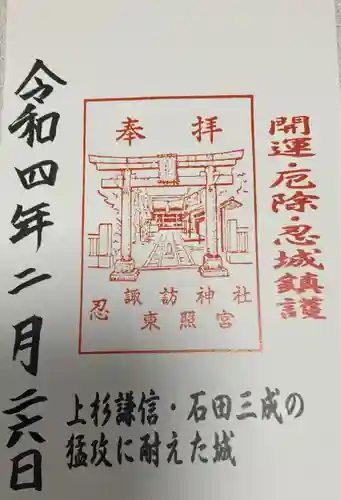 開運・厄除・忍城鎮護
奉拝
忍 諏訪神社
東照宮
上杉謙信・石田三成の
猛攻に耐えた城
令和四年二月二六日